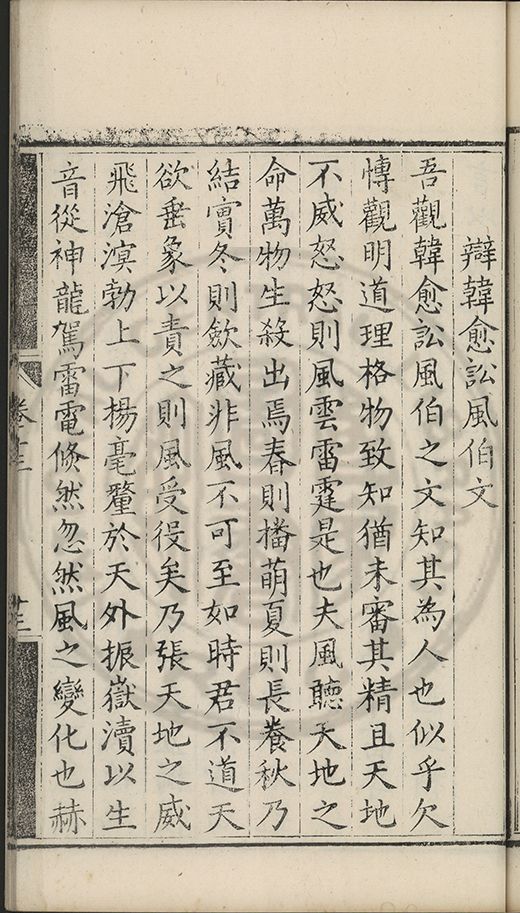 辯韓愈訟風伯文
吾觀韓愈訟風伯之文知其為人也似乎欠
慱觀明道理格物致知猶未審其精且天地
不威怒怒則風雲雷霆是也夫風聽天地之
命萬物生殺出焉春則播萌夏則長養秋乃
結實冬則歛藏非風不可至如時君不道天
欲垂象以責之則風受役矣乃張天地之威
飛滄溟勃上下揚毫釐於天外振嶽瀆以生
音從神龍駕雷電倐然忽然風之變化也赫
卷十三
十三